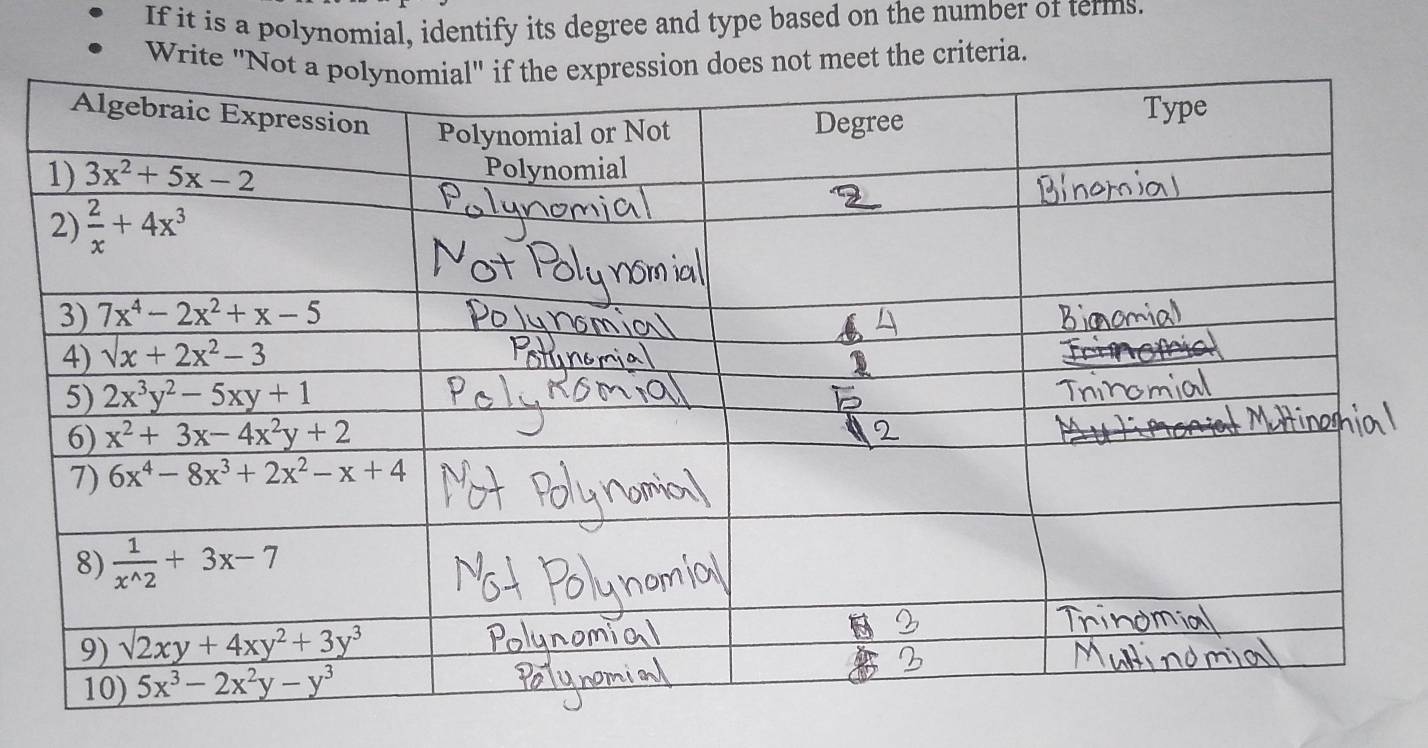 • If it is a polynomial, identify its degree and type based on the number of terms.
• Write "Not a polynomial" if the expression does not meet the criteria.
Algebraic Expression Polynomial or Not Polynomial Degree Type
1) 3x² + 5x − 2 Polynomial 2 Binomial
2) 2/x + 4x³ Not Polynomial
3) 7x⁴ − 2x² + x − 5 Polynomial 4 Binomial
4) √x + 2x² − 3 Polynomial 2 Trinomial
5) 2x³y² − 5xy + 1 Polynomial 5 Trinomial
6) x² + 3x − 4x²y + 2 2 Multinomial
7) 6x⁴ − 8x³ + 2x² − x + 4 Not Polynomial
8) 1/x^2 + 3x − 7 Not Polynomial
9) √2xy + 4xy² + 3y³ Polynomial 3 Trinomial
10) 5x³ − 2x²y − y³ Polynomial 3 Multinomial